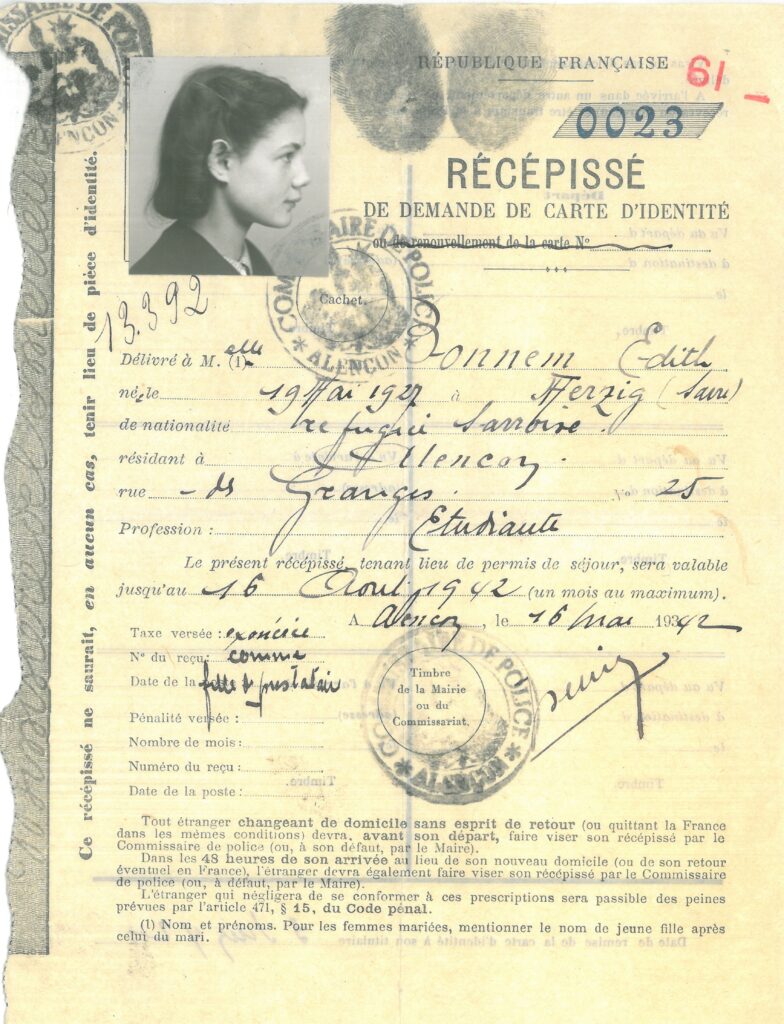 COMMISSAIRE DE POLICE
ALENCON
RÉPUBLIQUE FRANÇAISE
61
0023
RÉCÉPISSÉ
DE DEMANDE DE CARTE D'IDENTITÉ
ou de renouvellement de la carte N°
COMMISSAIRE DE POLICE
Cachet.
* ALENCON *
13.392
Ce récépissé ne saurait, en aucun cas, tenir lieu de pièce d'identité.
Délivré à M. elle (1) Bonnem Edith
née le 19 Mai 1927 à Merzig (Sarre)
de nationalité refugié Sarroise.
résidant à Alencon
rue - des Granges. N° 25
Profession : Etudiante
Le présent récépissé, tenant lieu de permis de séjour, sera valable
jusqu'au 16 Aout 1942 (un mois au maximum).
A Alencon, le 16 mai 19342
Taxe versée : exonérée
N° du reçu : comme
Date de la fille de prestataire
Pénalité versée :
Nombre de mois :
Numéro du reçu :
Date de la poste :
COMMISSAIRE DE POLICE
Timbre
de la Mairie
ou du
Commissariat.
* ALENCON *
Tout étranger changeant de domicile sans esprit de retour (ou quittant la France
dans les mêmes conditions) devra, avant son départ, faire viser son récépissé par le
Commissaire de police (ou, à son défaut, par le Maire).
Dans les 48 heures de son arrivée au lieu de son nouveau domicile (ou de son retour
éventuel en France), l'étranger devra également faire viser son récépissé par le Commissaire
de police (ou, à défaut, par le Maire).
L'étranger qui négligera de se conformer à ces prescriptions sera passible des peines
prévues par l'article 471, § 15, du Code pénal.
(1) Nom et prénoms. Pour les femmes mariées, mentionner le nom de jeune fille après
celui du mari.